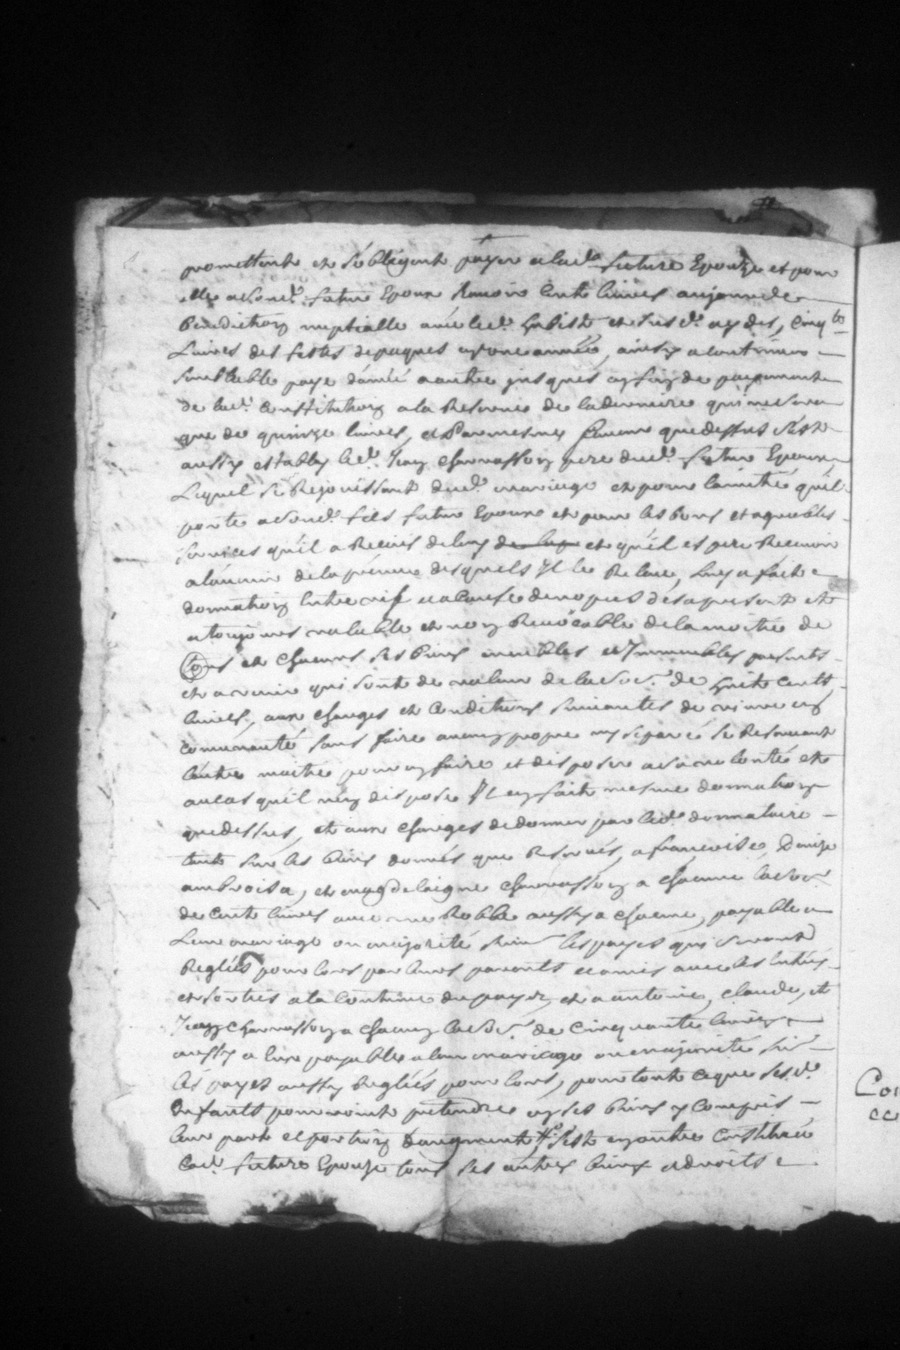 promettent et s'obligent payer a lad.e future Epouze et pour
elle a sond. futur Epoux scavoir cent livres au jour de
benediction nuptialle avec led. et ses d. aydes, cinq.te
Livres des festes de paques en une année, ainsy a continuer
semblable paye d'année a autre jusques a fin de payement
de lad. Constitution a la Reserve de la derniere qui ne sera
que de quinze livres, et Parmesmes que dessus s'est
aussy estably led. Jean Charvasson pere dud. futur Epoux
Lequel se Rejouissant dud. mariage et pour l'amitié qu'il
porte a sond. fils futur Epoux et pour les bons et agreables
services qu'il a Receus de luy et qu'il espere Recevoir
a l'avenir de la preuve desquels Il le Releve, luy a fait
donnation entre vif a cause de nopces des a present et
a toujours valable et non Revocable de la moitié de
tous et chacuns ses biens meubles et Immeubles presents
et a venir qui sont de valeur de la som. de huit cents
livres, aux charges et Conditions suivantes de vivre en
communauté sans faire aucun propre ny separé se Reservant
l'autre moitié pour en faire et disposer a sa volonté et
au cas qu'il n'en dispose Il en fait mesme donnation
que dessus, et aux charges de donner par led. donnataire
tant sur les biens donnés que Reservés, a francoise, Denize
ambroisa, et magdelaigne Charvasson a chacune la som.
de cent livres avec une Robbe aussy a chacune, payable a
Leur mariage ou majorité suiv. les payes qui seront
Reglées pour lors par leurs parents et amis avec les Intérests
et sorties a la Coutume du pays, et a antoine, claude, et
Jean Charvasson a chacun la som. de Cinquante livres
aussy a Eux payable a leur mariage ou majorité suiv.
les payes aussy Reglées pour lors, pour tout ce que sesd.
Enfants pourroint pretendre en ses biens y Compris
leur part et portion d'augment. s'est en outre Constituée
lad. future Epouze tous ses autres biens et droits